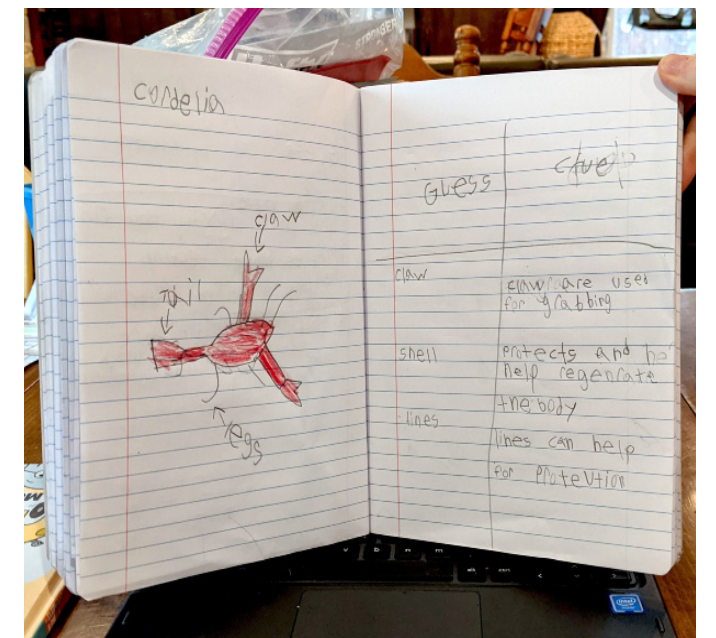 STRONGER
Cordelia
claw
Tail
legs
Guess
clue
claw
claw are used
for grabbing
shell
protects and he
help regenrate
the body
lines
lines can help
for protevtion
intel